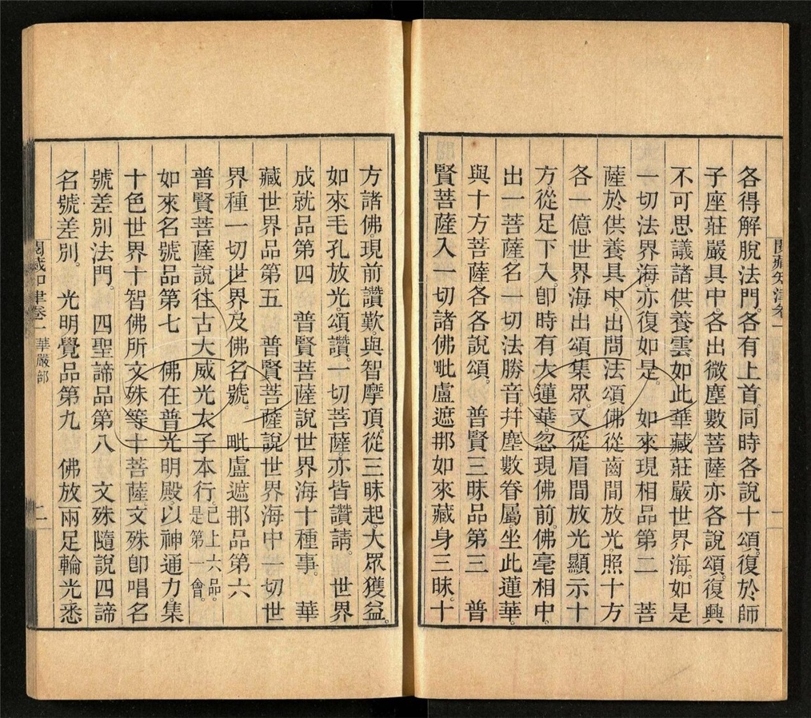 閱藏知津卷一
一
各得解脫法門。各有上首。同時各說十頌。復於師
子座莊嚴具中。各出微塵數菩薩。亦各說頌。復興
不可思議諸供養雲。如此華藏莊嚴世界海。如是
一切法界海。亦復如是。　如來現相品第二　菩
薩於供養具中出問法頌。佛從齒間放光。照十方
各一億世界海。出頌集眾。又從眉間放光。顯示十
方。從足下入。卽時有大蓮華。忽現佛前。佛毫相中。
出一菩薩。名一切法勝音。幷塵數眷屬。坐此蓮華。
與十方菩薩各各說頌。　普賢三昧品第三　普
賢菩薩入一切諸佛毗盧遮那如來藏身三昧。十
方諸佛。現前讚歎。與智摩頂。從三昧起。大眾獲益。
如來毛孔放光頌讚。一切菩薩亦皆讚請。　世界
成就品第四　普賢菩薩說世界海十種事。　華
藏世界品第五　普賢菩薩說世界海中一切世
界種。一切世界。及佛名號。　毗盧遮那品第六
普賢菩薩說往古大威光太子本行。已上六品。是第一會。
如來名號品第七　佛在普光明殿。以神通力。集
十色世界十智佛所文殊等十菩薩。文殊卽唱名
號差別法門。　四聖諦品第八　文殊隨說四諦
名號差別。　光明覺品第九　佛放兩足輪光。悉
閱藏知津卷一　華嚴部
二